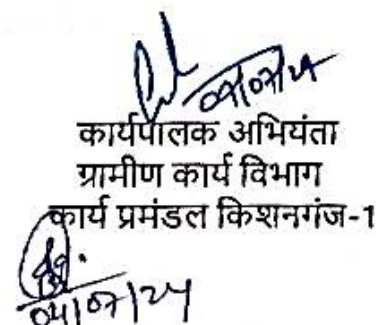 04/07/24
कार्यपालक अभियंता
ग्रामीण कार्य विभाग
कार्य प्रमंडल किशनगंज-1
04/07/24